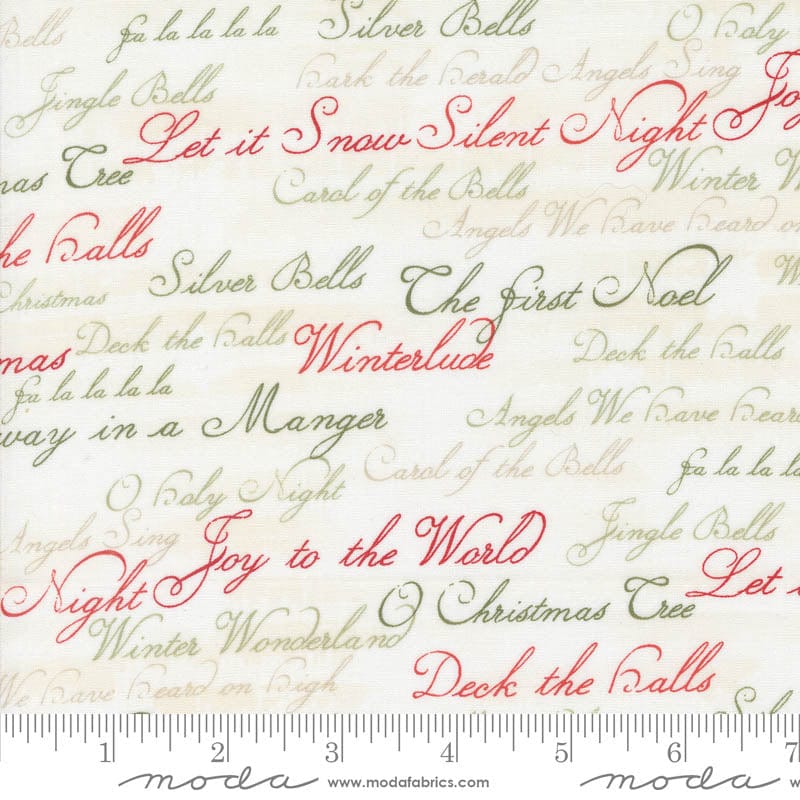 Bells fa la la la la Silver Bells O holy
Jingle Bells hark the herald Angels Sing Joy
Let it Snow Silent Night
mas Tree Carol of the Bells Winter W
Angels We have heard on
he halls
Silver Bells The first Noel W
Christmas
mas Deck the halls Winterlude Deck the halls
fa la la la la
way in a Manger Angels We have heard
Carol of the Bells fa la la la
O holy Night
Angels Sing Joy to the World Jingle Bells
Night O Christmas Tree Let i
Winter Wonderland
We have heard on high Deck the halls
Sil
1 2 3 4 5 6 7
moda www.modafabrics.com moda w